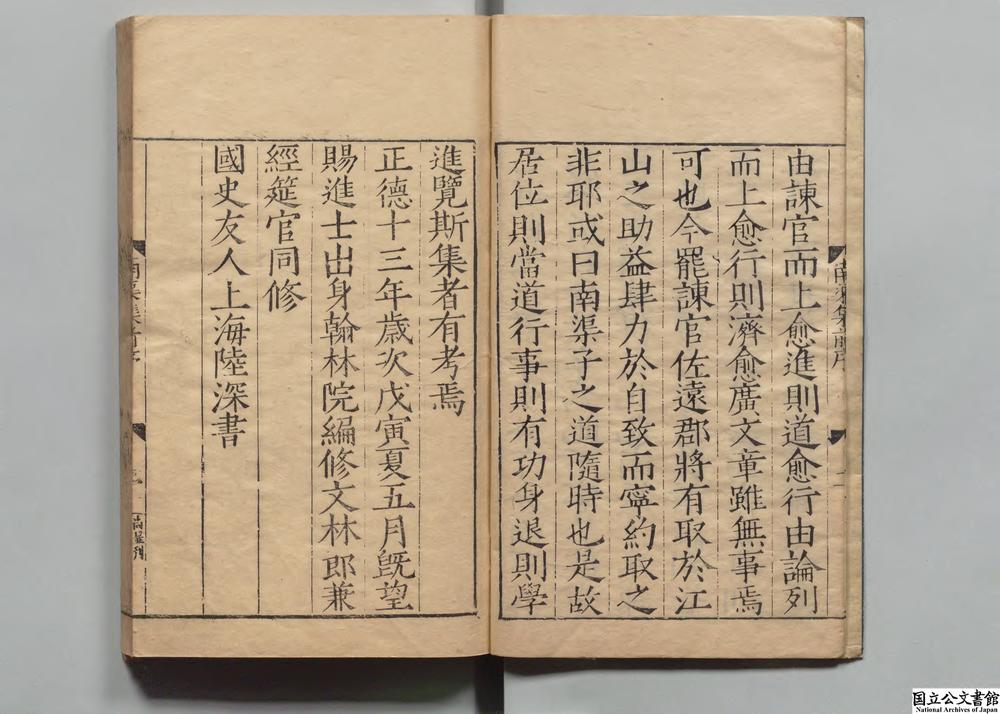 由諫官而上愈進則道愈行由論列
而上愈行則濟愈廣文章雖無事焉
可也今罷諫官佐遠郡將有取於江
山之助益肆力於自致而寧約取之
非耶或曰南渠子之道隨時也是故
居位則當道行事則有功身退則學
進覽斯集者有考焉
正德十三年歲次戊寅夏五月旣望
賜進士出身翰林院編修文林郎兼
經筵官同修
國史友人上海陸深書
国立公文書館
National Archives of Japan